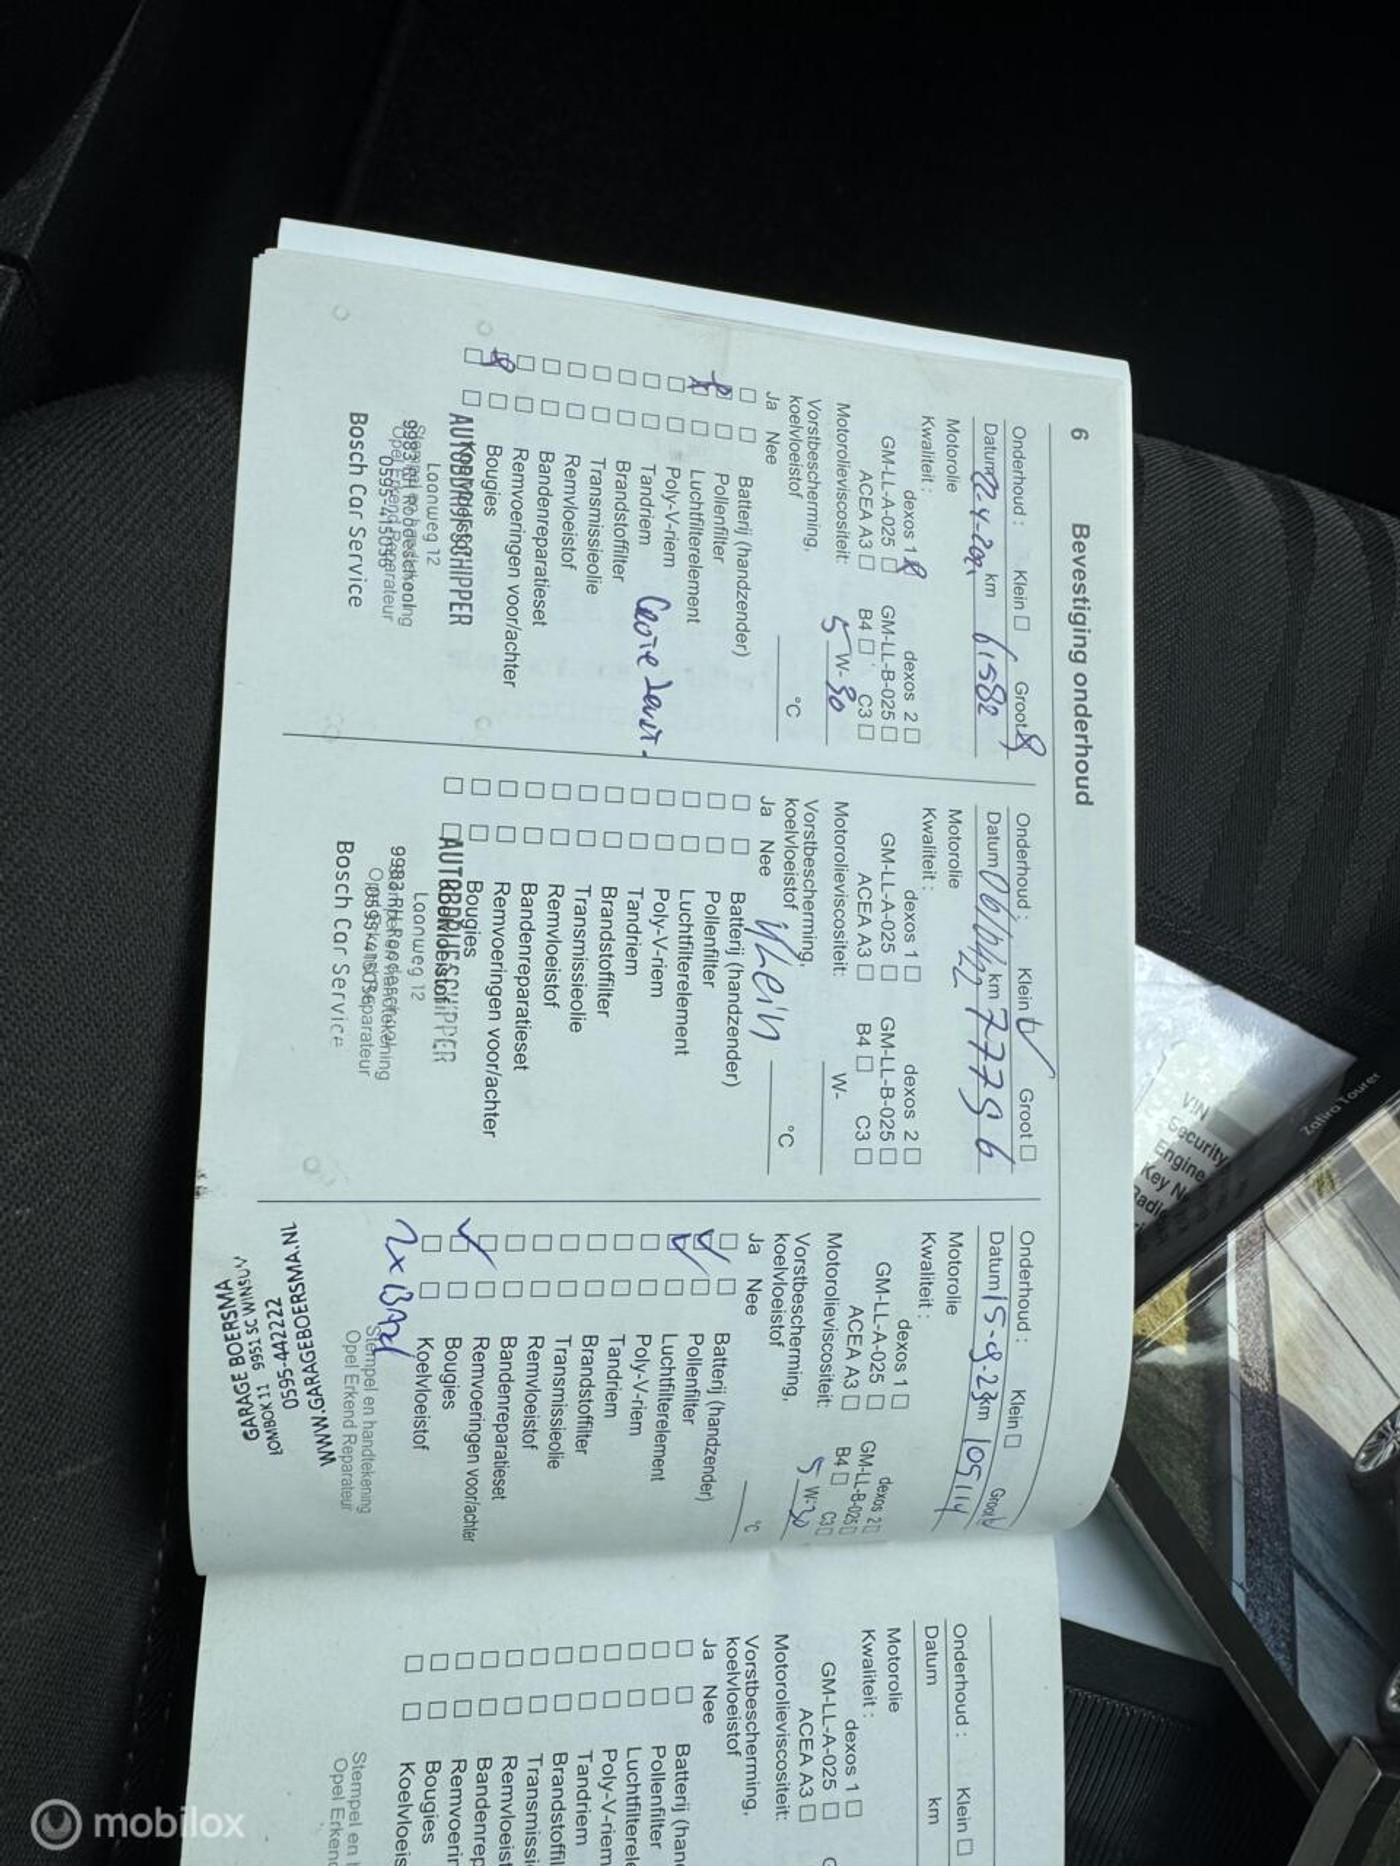 6 Bevestiging onderhoud
Onderhoud : Klein Groot
Datum km 61582
Motorolie
Kwaliteit : dexos 1 dexos 2
GM-LL-A-025 GM-LL-B-025
ACEA A3 B4 C3
Motorolieviscositeit: 5 W-30
Vorstbescherming,
koelvloeistof °C
Ja Nee
Batterij (handzender)
Pollenfilter
Luchtfilterelement
Poly-V-riem
Tandriem
Brandstoffilter
Transmissieolie
Remvloeistof
Bandenreparatieset
Remvoeringen voor/achter
Bougies
AUTOBEDRIJF SCHIPPER
Laanweg 12
Bosch Car Service
Onderhoud : Klein Groot
Datum km 77756
Motorolie
Kwaliteit : dexos 1 dexos 2
GM-LL-A-025 GM-LL-B-025
ACEA A3 B4 C3
Motorolieviscositeit: W-
Vorstbescherming,
koelvloeistof °C
Klein
Ja Nee
Batterij (handzender)
Pollenfilter
Luchtfilterelement
Poly-V-riem
Tandriem
Brandstoffilter
Transmissieolie
Remvloeistof
Bandenreparatieset
Remvoeringen voor/achter
Bougies
AUTOBEDRIJF SCHIPPER
Laanweg 12
Bosch Car Service
Onderhoud : Klein Groot
Datum 15-9-23 km 105114
Motorolie
Kwaliteit : dexos 1 dexos 2
GM-LL-A-025 GM-LL-B-025
ACEA A3 B4 C3
Motorolieviscositeit: 5 W-30
Vorstbescherming,
koelvloeistof °C
Ja Nee
Batterij (handzender)
Pollenfilter
Luchtfilterelement
Poly-V-riem
Tandriem
Brandstoffilter
Transmissieolie
Remvloeistof
Bandenreparatieset
Remvoeringen voor/achter
Bougies
Koelvloeistof
2x Band
Stempel en handtekening
Opel Erkend Reparateur
WWW.GARAGEBOERSMA.NL
0595-442222
LOMBOK 11 9951 SC WINSUM
GARAGE BOERSMA
Onderhoud : Klein
Datum km
Motorolie
Kwaliteit : dexos 1
GM-LL-A-025
ACEA A3
Motorolieviscositeit:
Vorstbescherming,
koelvloeistof
Ja Nee
Batterij (han
Pollenfilter
Luchtfilterele
Poly-V-riem
Tandriem
Brandstoffil
Transmissi
Remvloeist
Bandenrep
Remvoerin
Bougies
Koelvloeis
Stempel en
Opel Erken
VIN
Security
Engine
Key N
Radi
Zafira Tourer
mobilox